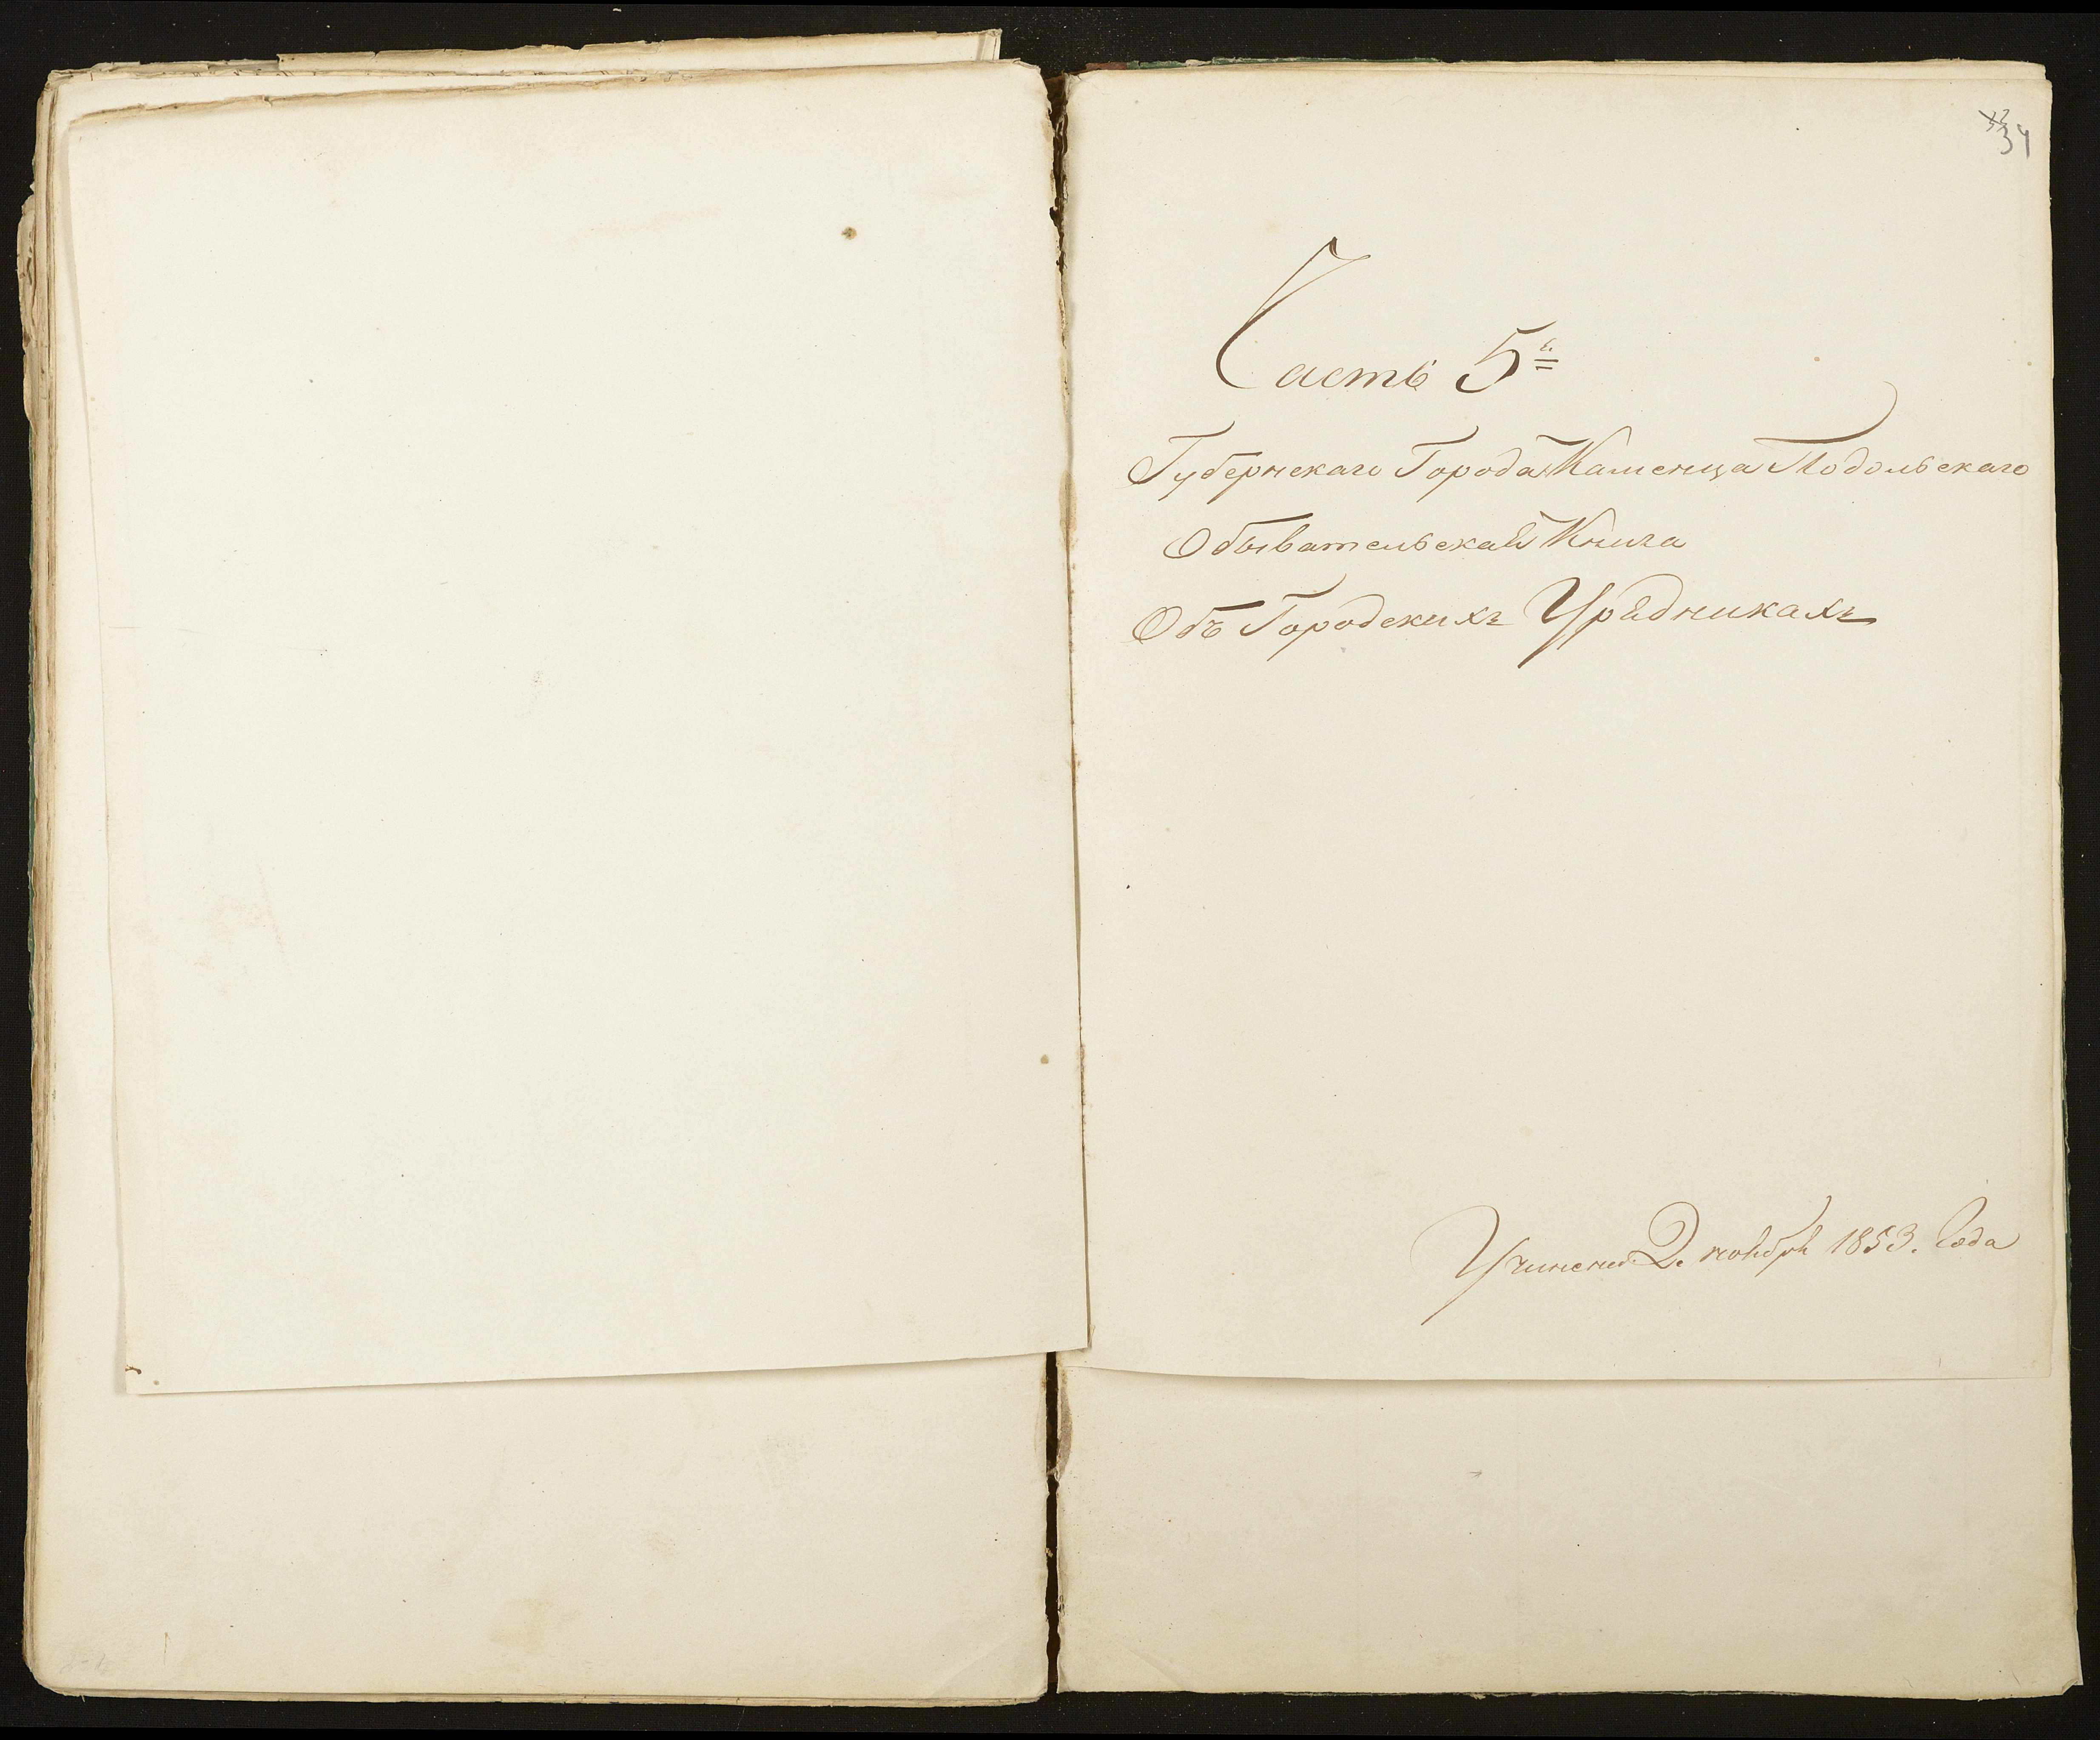 34
Часть 5я
Губернскаго Города Каменца Подольскаго
Обывательская Книга
Объ Городскихъ Урядникахъ
Учинено 2. ноября 1853. Года